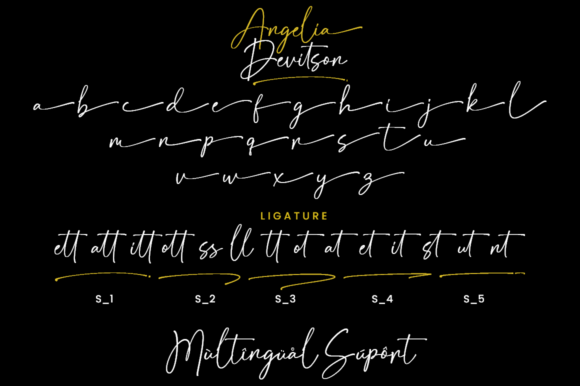 Angelia
Devitson
a b c d e f g h i j k l
m n p q r s t u
v w x y z
LIGATURE
ett att itt ott ss ll tt ot at et it st ut nt
S_1 S_2 S_3 S_4 S_5
Mùltîngüål Sūpôrt